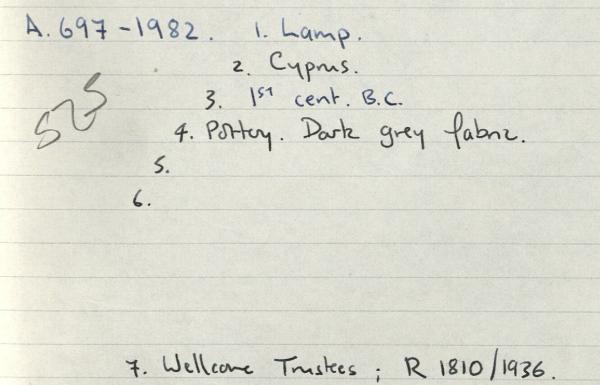 A. 697-1982. 1. Lamp.
2. Cyprus.
3. 1st cent. B.C.
4. Pottery. Dark grey fabric.
5.
6.
7. Wellcome Trustees ; R 1810/1936.